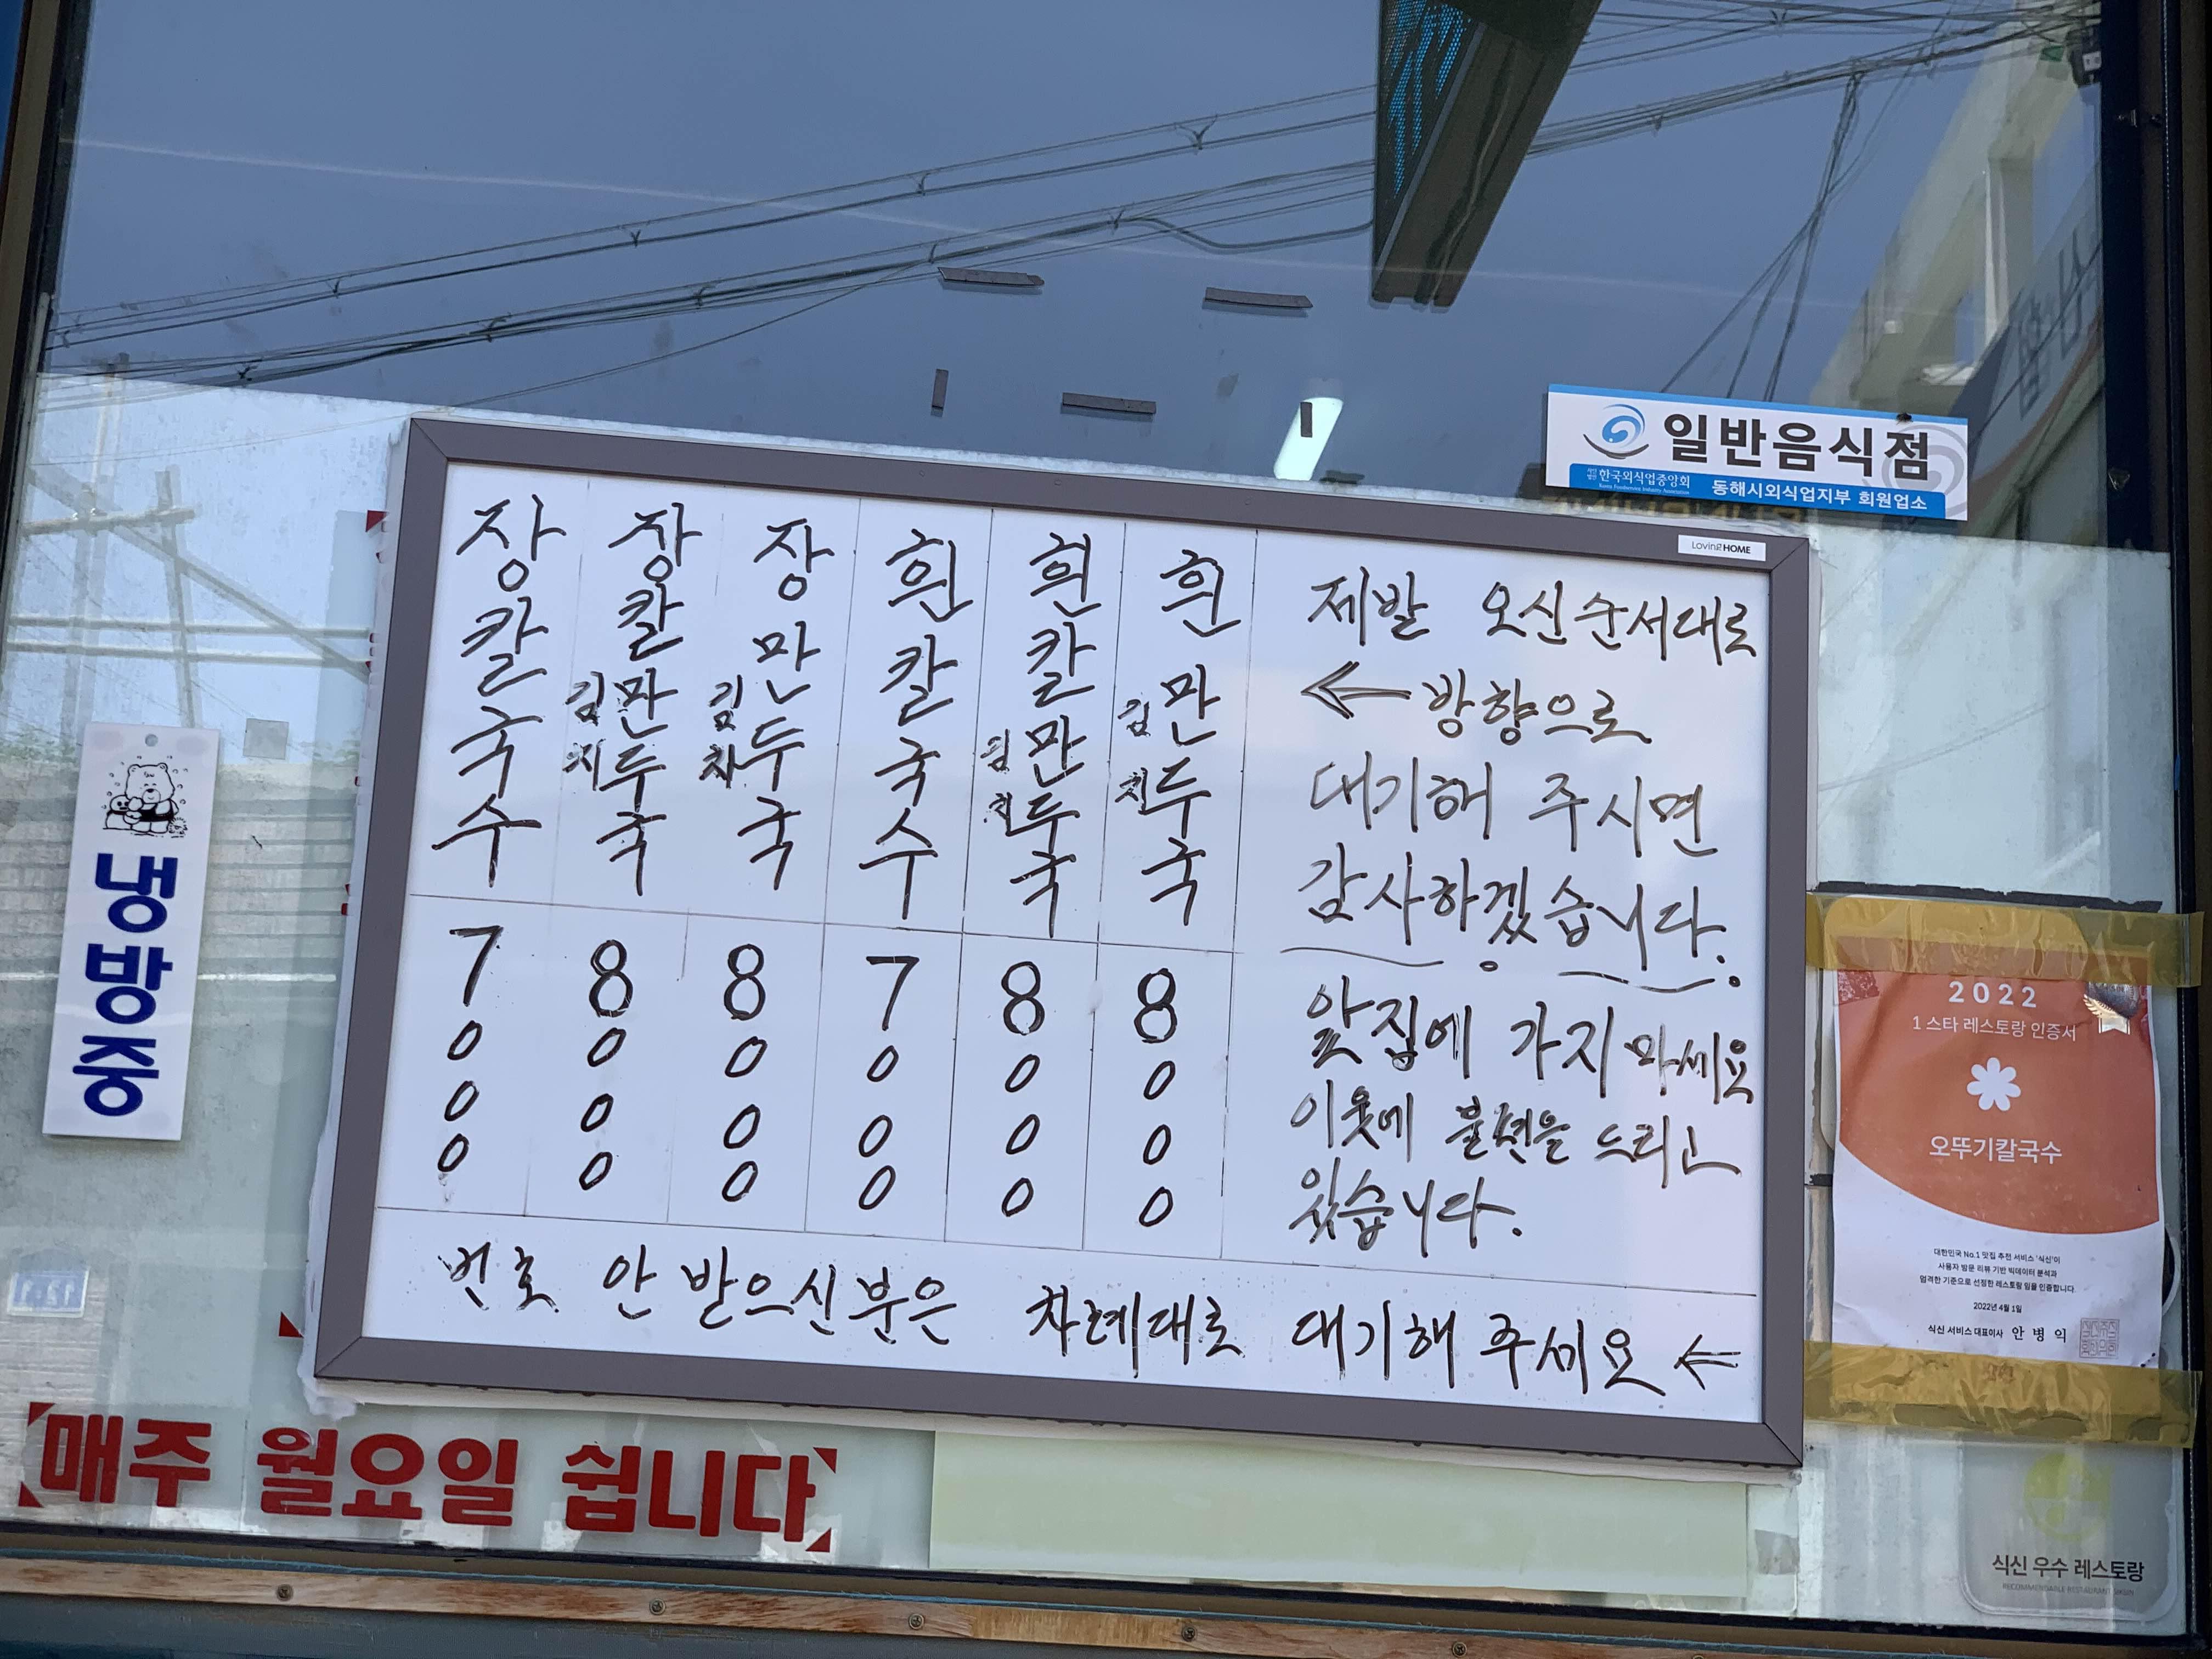 일반음식점
한국외식업중앙회
동해시외식업지부 회원업소
Loving HOME
장칼국수 7000
장칼만두국 김치 8000
장만두국 김치 8000
흰칼국수 7000
흰칼만두국 김치 8000
흰만두국 김치 8000
제발 오신순서대로
← 방향으로
대기해 주시면
감사하겠습니다.
앞집에 가지마세요
이웃에 불편을 드리고
있습니다.
번호 안 받으신분은 차례대로 대기해 주세요 ←
냉방중
2022
1 스타 레스토랑 인증서
오뚜기칼국수
대한민국 No.1 맛집 추천 서비스 '식신'이
사용자 방문 리뷰 기반 빅데이터 분석과
엄격한 기준으로 선정한 레스토랑 임을 인증합니다.
2022년 4월 1일
식신 서비스 대표이사 안병익
매주 월요일 쉽니다
식신 우수 레스토랑